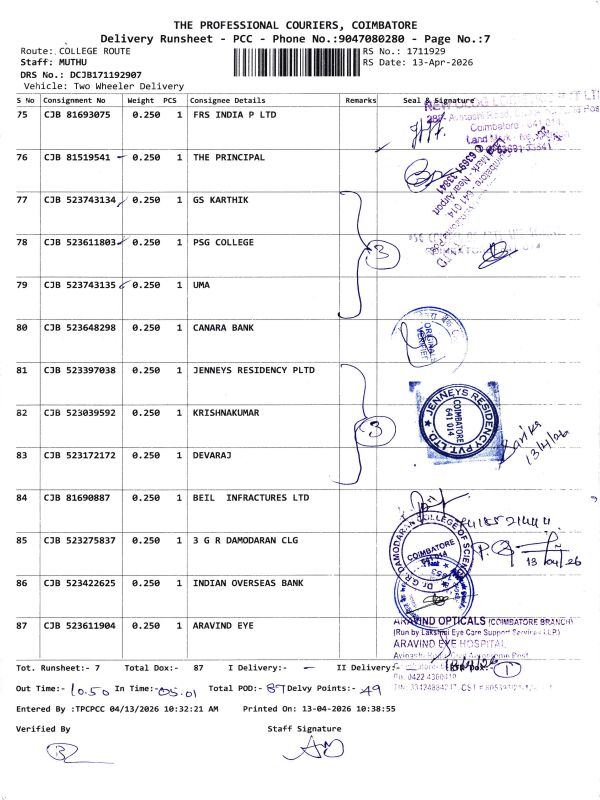 THE PROFESSIONAL COURIERS, COIMBATORE
Delivery Runsheet - PCC - Phone No.:9047080280 - Page No.:7
Route: COLLEGE ROUTE RS No.: 1711929
Staff: MUTHU RS Date: 13-Apr-2026
DRS No.: DCJB171192907
Vehicle: Two Wheeler Delivery
S No Consignment No Weight PCS Consignee Details Remarks Seal & Signature
75 CJB 81693075 0.250 1 FRS INDIA P LTD
Coimbatore - 641 014
76 CJB 81519541 0.250 1 THE PRINCIPAL
77 CJB 523743134 0.250 1 GS KARTHIK
78 CJB 523611803 0.250 1 PSG COLLEGE 3
79 CJB 523743135 0.250 1 UMA
80 CJB 523648298 0.250 1 CANARA BANK
81 CJB 523397038 0.250 1 JENNEYS RESIDENCY PLTD
JENNEYS RESIDENCY PVT. LTD.
COIMBATORE
641 014
82 CJB 523039592 0.250 1 KRISHNAKUMAR 3
13/4/26
83 CJB 523172172 0.250 1 DEVARAJ
84 CJB 81690887 0.250 1 BEIL INFRACTURES LTD
85 CJB 523275837 0.250 1 3 G R DAMODARAN CLG
Dr.G.R. DAMODARAN COLLEGE OF SCIENCE
COIMBATORE
641 014
13/04/26
86 CJB 523422625 0.250 1 INDIAN OVERSEAS BANK
87 CJB 523611904 0.250 1 ARAVIND EYE
ARAVIND OPTICALS (COIMBATORE BRANCH)
(Run by Lakshmi Eye Care Support Services LLP.)
ARAVIND EYE HOSPITAL
Tot. Runsheet:- 7 Total Dox:- 87 I Delivery:- - II Delivery:- 1
Out Time:- 10.50 In Time:- 05.01 Total POD:- 87 Delvy Points:- 49
Ph: 0422 4360410
Entered By :TPCPCC 04/13/2026 10:32:21 AM Printed On: 13-04-2026 10:38:55
Verified By Staff Signature